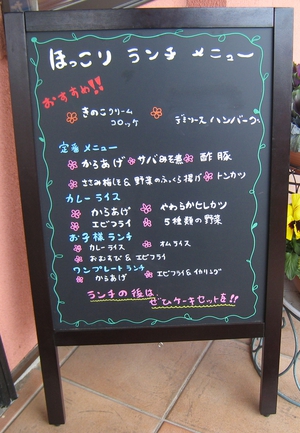 ほっこり ランチ メニュー
おすすめ!!
きのこクリームコロッケ
デミソース ハンバーグ
定番メニュー
からあげ サバみそ煮 酢豚
ささみ梅しそ&野菜のふっくら揚げ トンカツ
カレーライス
からあげ やわらかヒレカツ
エビフライ 5種類の野菜
お子様ランチ
カレーライス オムライス
おむすび&エビフライ
ワンプレートランチ
からあげ エビフライ&イカリング
ランチの後は
ぜひケーキセットを!!